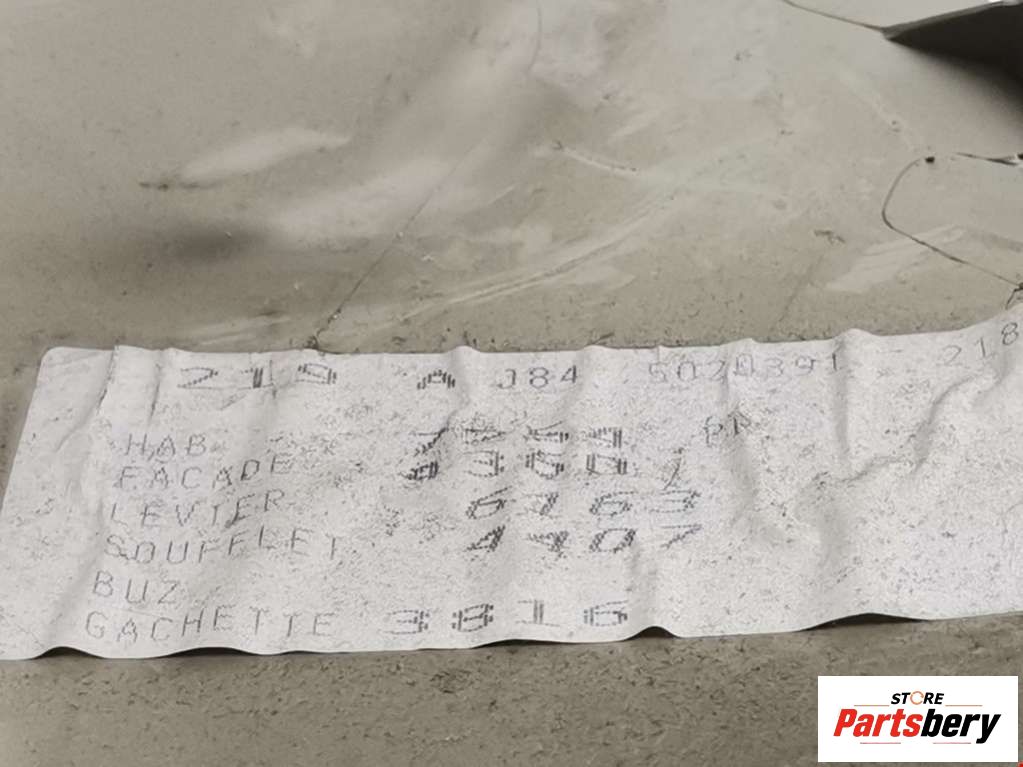 219 A J84 5020391 218
HAB
FACADE
LEVIER 6763
SOUFFLET 4407
BUZ
GACHETTE 3816
STORE
Partsbery